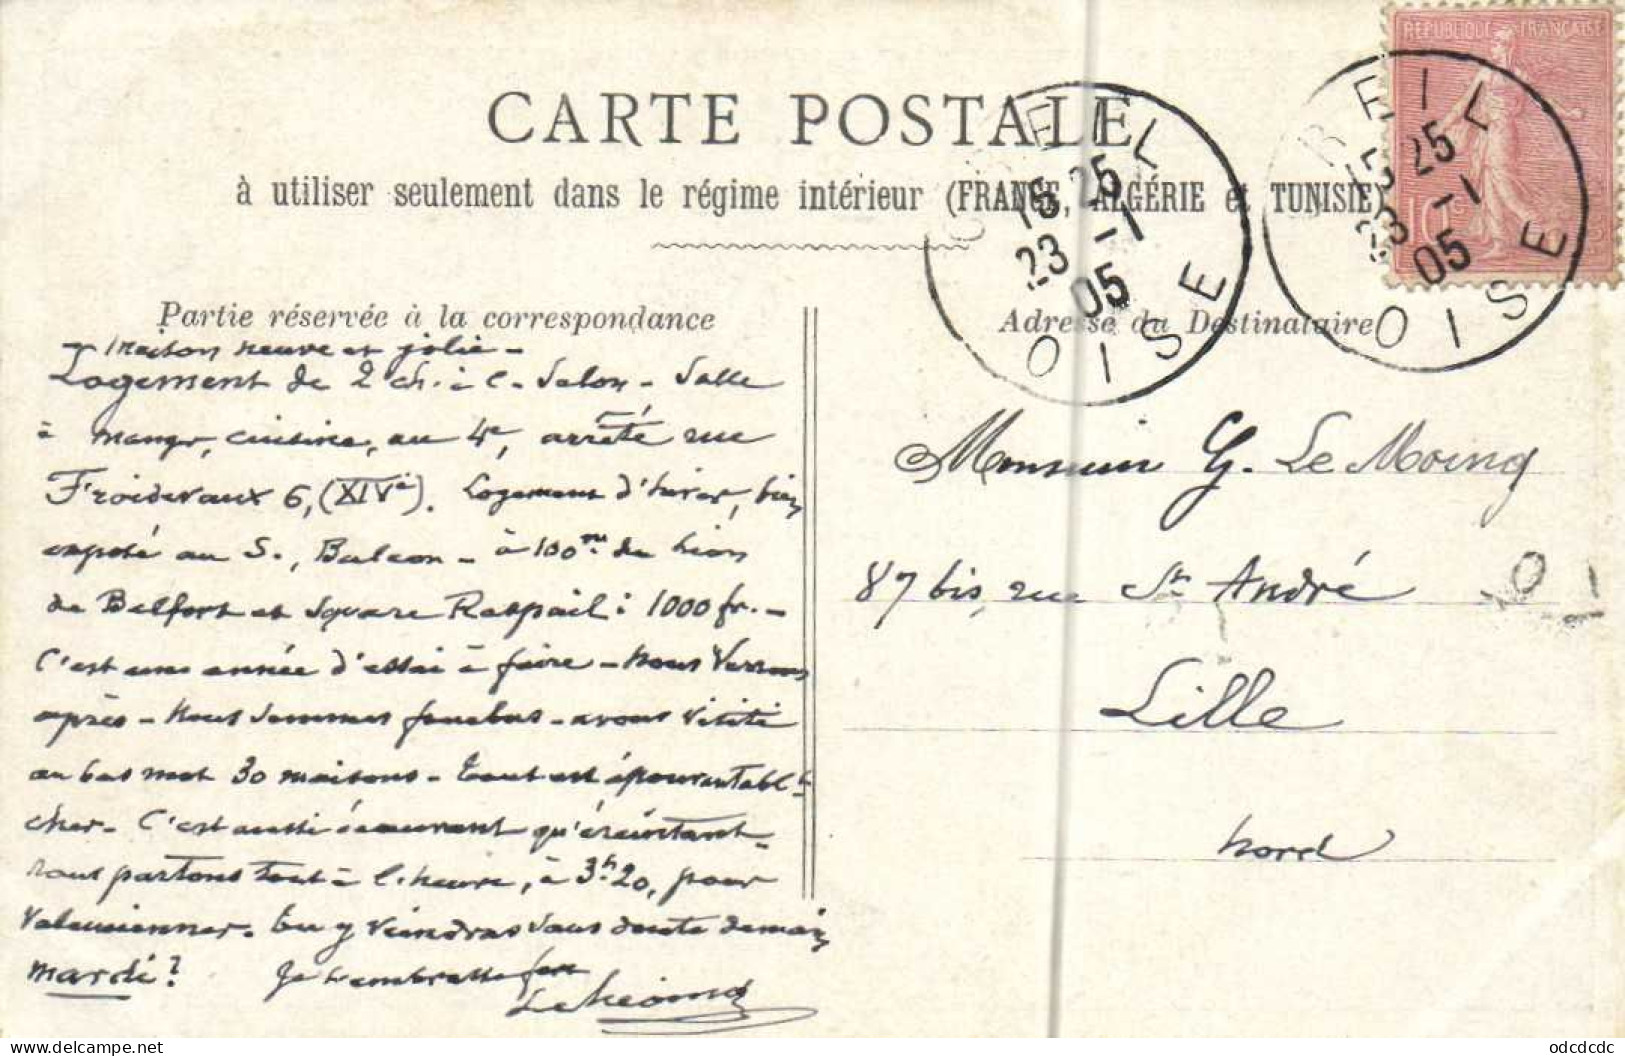 REPUBLIQUE FRANÇAISE
10c
CREIL
15 25
23 -1
05
OISE
CREIL
25
23 -1
05
OISE
CARTE POSTALE
à utiliser seulement dans le régime intérieur (FRANCE, ALGÉRIE et TUNISIE)
Partie réservée à la correspondance
maison neuve et jolie -
Logement de 2 ch. à c. - Salon - Salle
à manger, cuisine, au 4e, arrêté rue
Froidevaux 6, (XIVe). Logement d'hiver, bien
exposé au S., Balcon - à 100 m. du Lion
de Belfort et Square Raspail : 1000 fr. -
C'est une année d'essai à faire - Nous verrons
après - Nous sommes fourbus - avons visité
au bas mot 30 maisons - Tout est épouvantablt
cher - C'est aussi écœurant qu'éreintant -
nous partons tout à l'heure, à 3h20, pour
Valenciennes. Tu y viendras sans doute demain
mardi ? Je t'embrasse fort
Adresse du Destinataire
Monsieur G. Le Moing
87 bis, rue St André
Lille
Nord
odcdcdc
https://www.delcampe.net